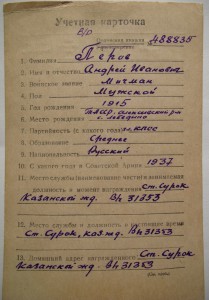 Учетная карточка
б/о
488835
1. Фамилия Перов
2. Имя и отчество Андрей Иванович
3. Воинское звание Мичман
4. Пол Мужской
5. Год рождения 1915
6. Место рождения
с. Лебедино
7. Партийность (с какого года)
8. Образование Среднее
9. Национальность Русский
10. С какого года в Советской Армии 1937
11. Место службы
должность в момент награждения ст. Сурок
Казанской жд. В/ч 31353
12. Место службы и должность в настоящее время
Ст. Сурок, каз.жд. В/ч 31353
13. Домашний адрес награжденного Ст. Сурок
Казанской жд. В/ч 31353